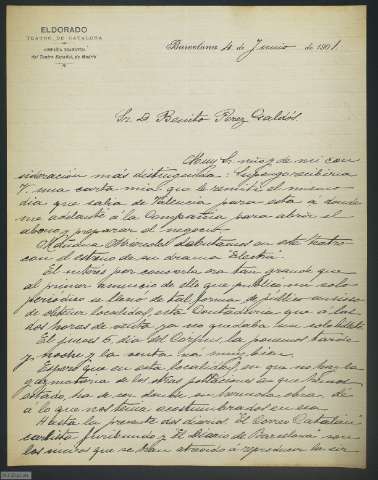 ELDORADO
TEATRO DE CATALUÑA
COMPAÑIA DRAMATICA
del Teatro Español, de Madrid
Barcelona 4 de Junio de 1901.
Sr. D. Benito Perez Galdós.
Muy Sr. mio y de mi con
sideración más distinguida: Supongo recibiria
V. una carta mia que le remití el mismo
dia que salia de Valencia para esta a donde
me adelanté á la Compañia para abrir el
abono y preparar el negocio.
Mañana Miercoles debutamos en este teatro
con el estreno de su drama Electra.
El interes por conocerla era tan grande que
al primer anuncio de ello que publicó un solo
periodico se llenó de tal forma de publico ansioso
de obtener localidad, esta Contaduria que á las
dos horas de venta ya no quedaba un solo billete
El jueves 6, dia del Corpus, la ponemos tarde
y noche y la venta va muy bien.
Espero que en esta localidad, en que no hay la
de las otras poblaciones en que hemos
estado, ha de ser donde su hermosa obra, dé
á lo que nos tenia acostumbrados en esa
Hasta la presente dos diarios, El Correo Catalan
carlista furibundo y El Diario de Barcelona son
los unicos que se han atrevido á reproducir la cir